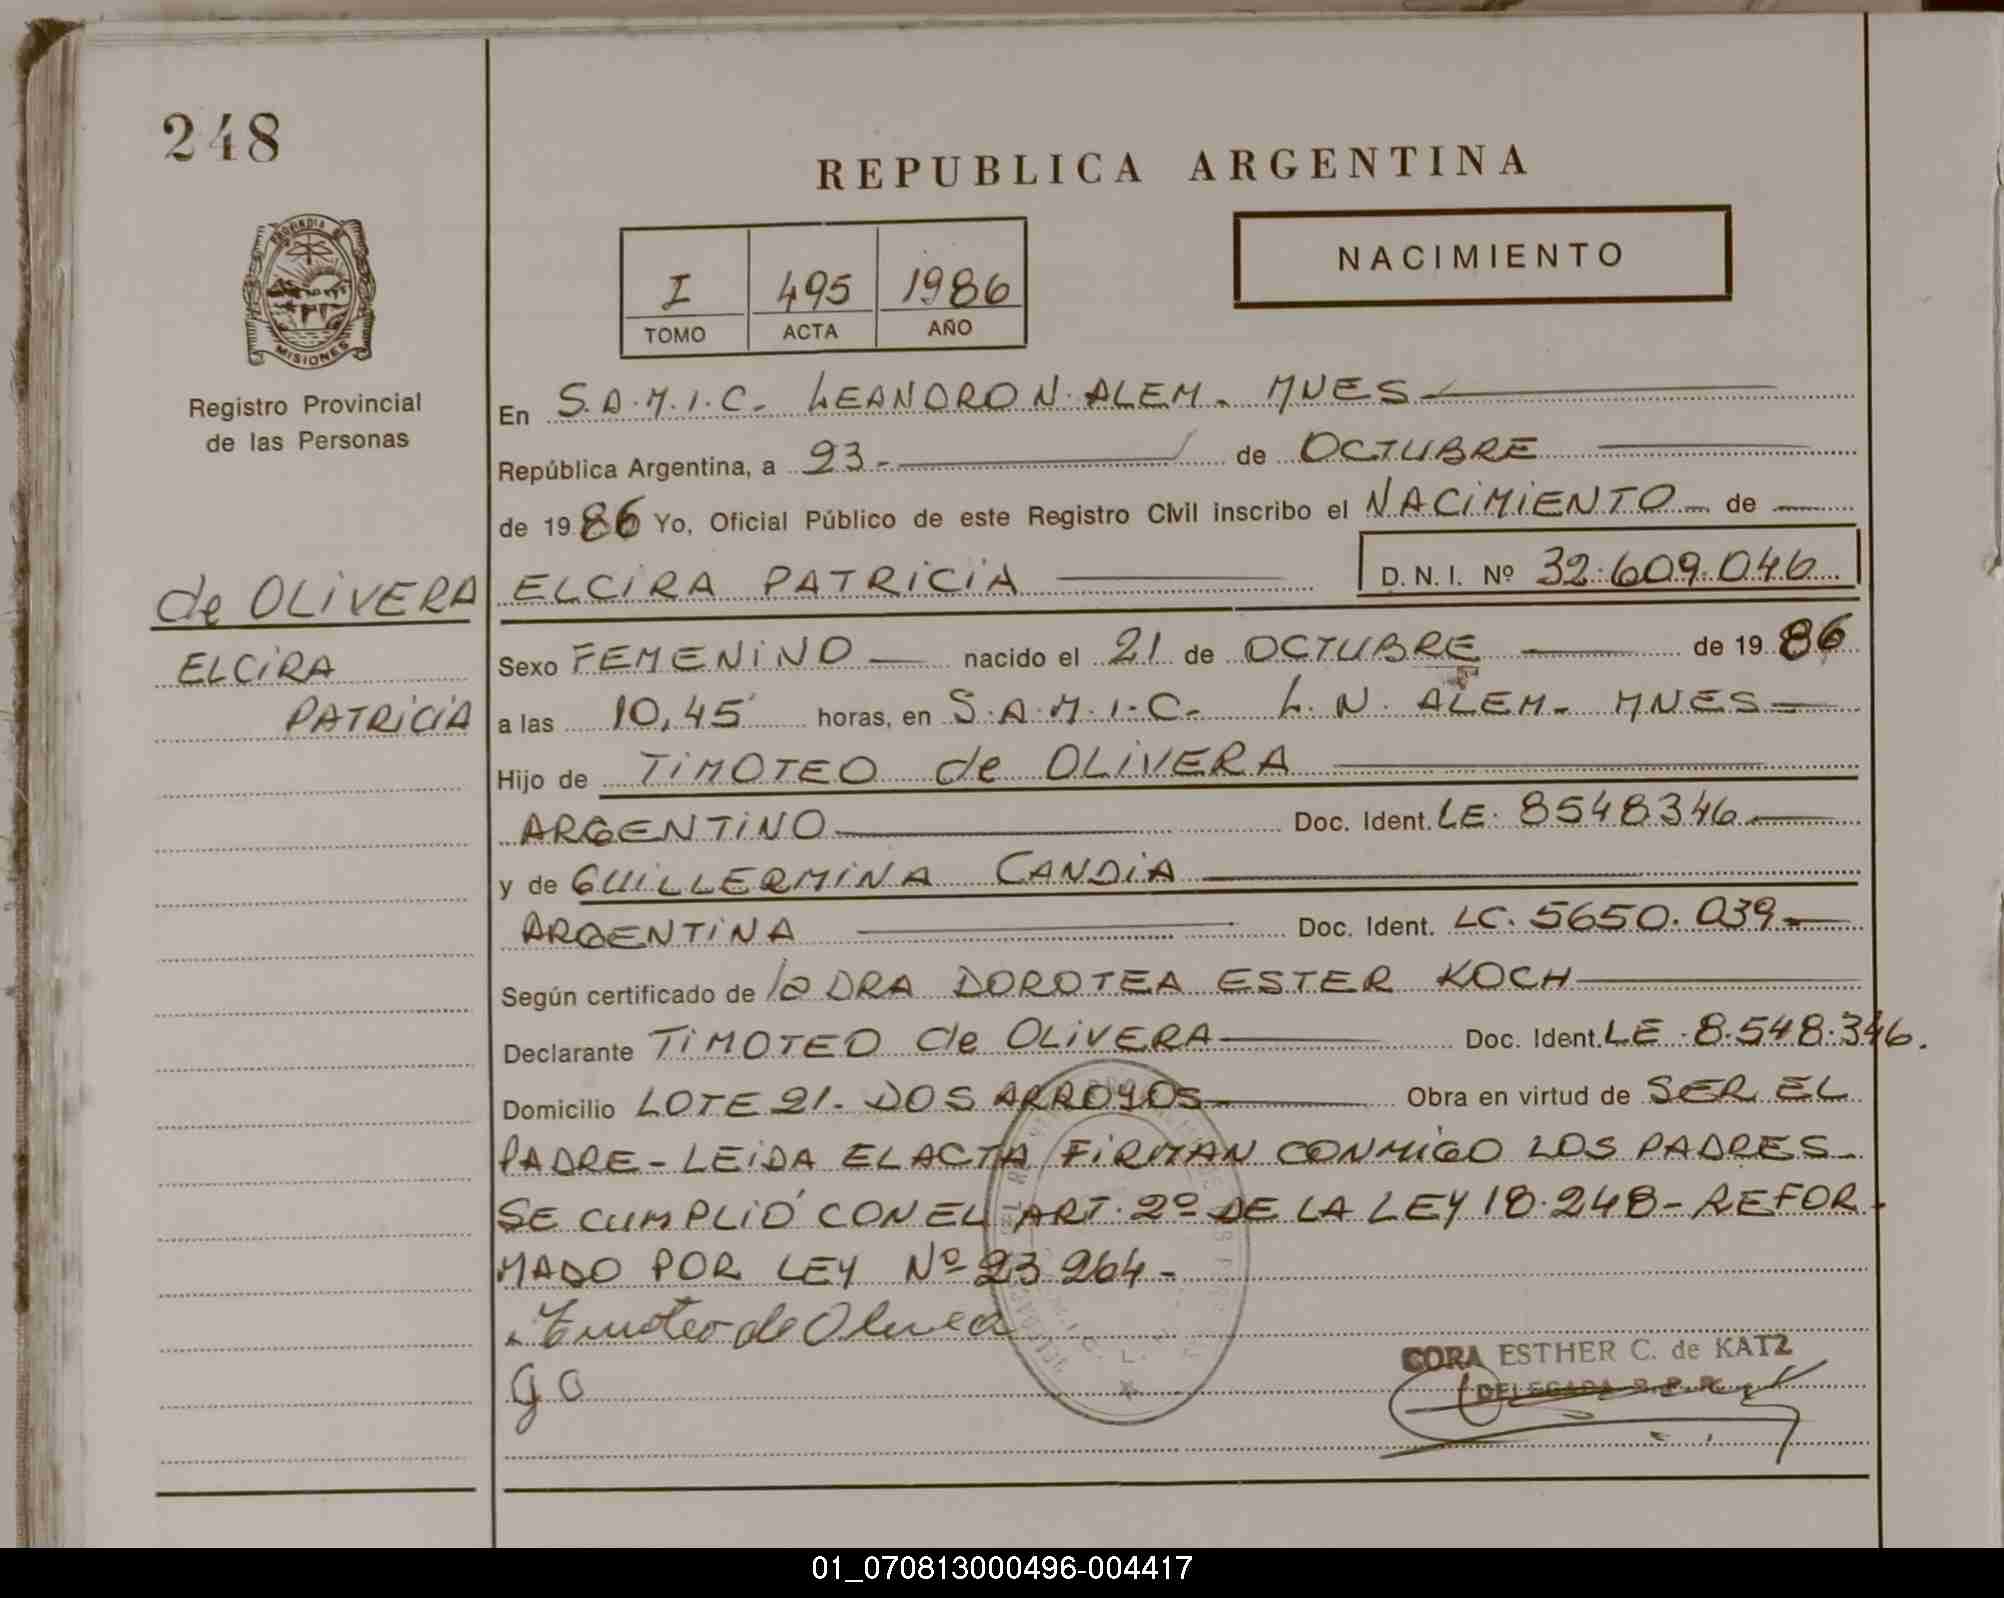 248
REPUBLICA ARGENTINA
PROVINCIA DE MISIONES
I 495 1986
TOMO ACTA AÑO
NACIMIENTO
Registro Provincial
de las Personas
En S.A.M.I.C. LEANDRO N. ALEM. MNES
República Argentina, a 23 de OCTUBRE
de 1986 Yo, Oficial Público de este Registro Civil inscribo el NACIMIENTO de
de OLIVERA ELCIRA PATRICIA D.N.I. Nº 32.609.046
ELCIRA
PATRICIA
Sexo FEMENINO nacido el 21 de OCTUBRE de 1986
a las 10,45 horas, en S.A.M.I.C. L.N. ALEM. MNES
Hijo de TIMOTEO de OLIVERA
ARGENTINO Doc. Ident. LE. 8548346
y de GUILLERMINA CANDIA
ARGENTINA Doc. Ident. LC. 5650.039
Según certificado de la DRA DOROTEA ESTER KOCH
Declarante TIMOTEO de OLIVERA Doc. Ident. LE 8.548.346.
Domicilio LOTE 21. DOS ARROYOS Obra en virtud de SER EL
PADRE - LEIDA EL ACTA FIRMAN CONMIGO LOS PADRES
SE CUMPLIÓ CON EL ART. 2º DE LA LEY 18.248 - REFOR-
MADO POR LEY Nº 23264 -
Timoteo de Olivera
G C
CORA ESTHER C. de KATZ
DELEGADA R.P.P.
01_070813000496-004417